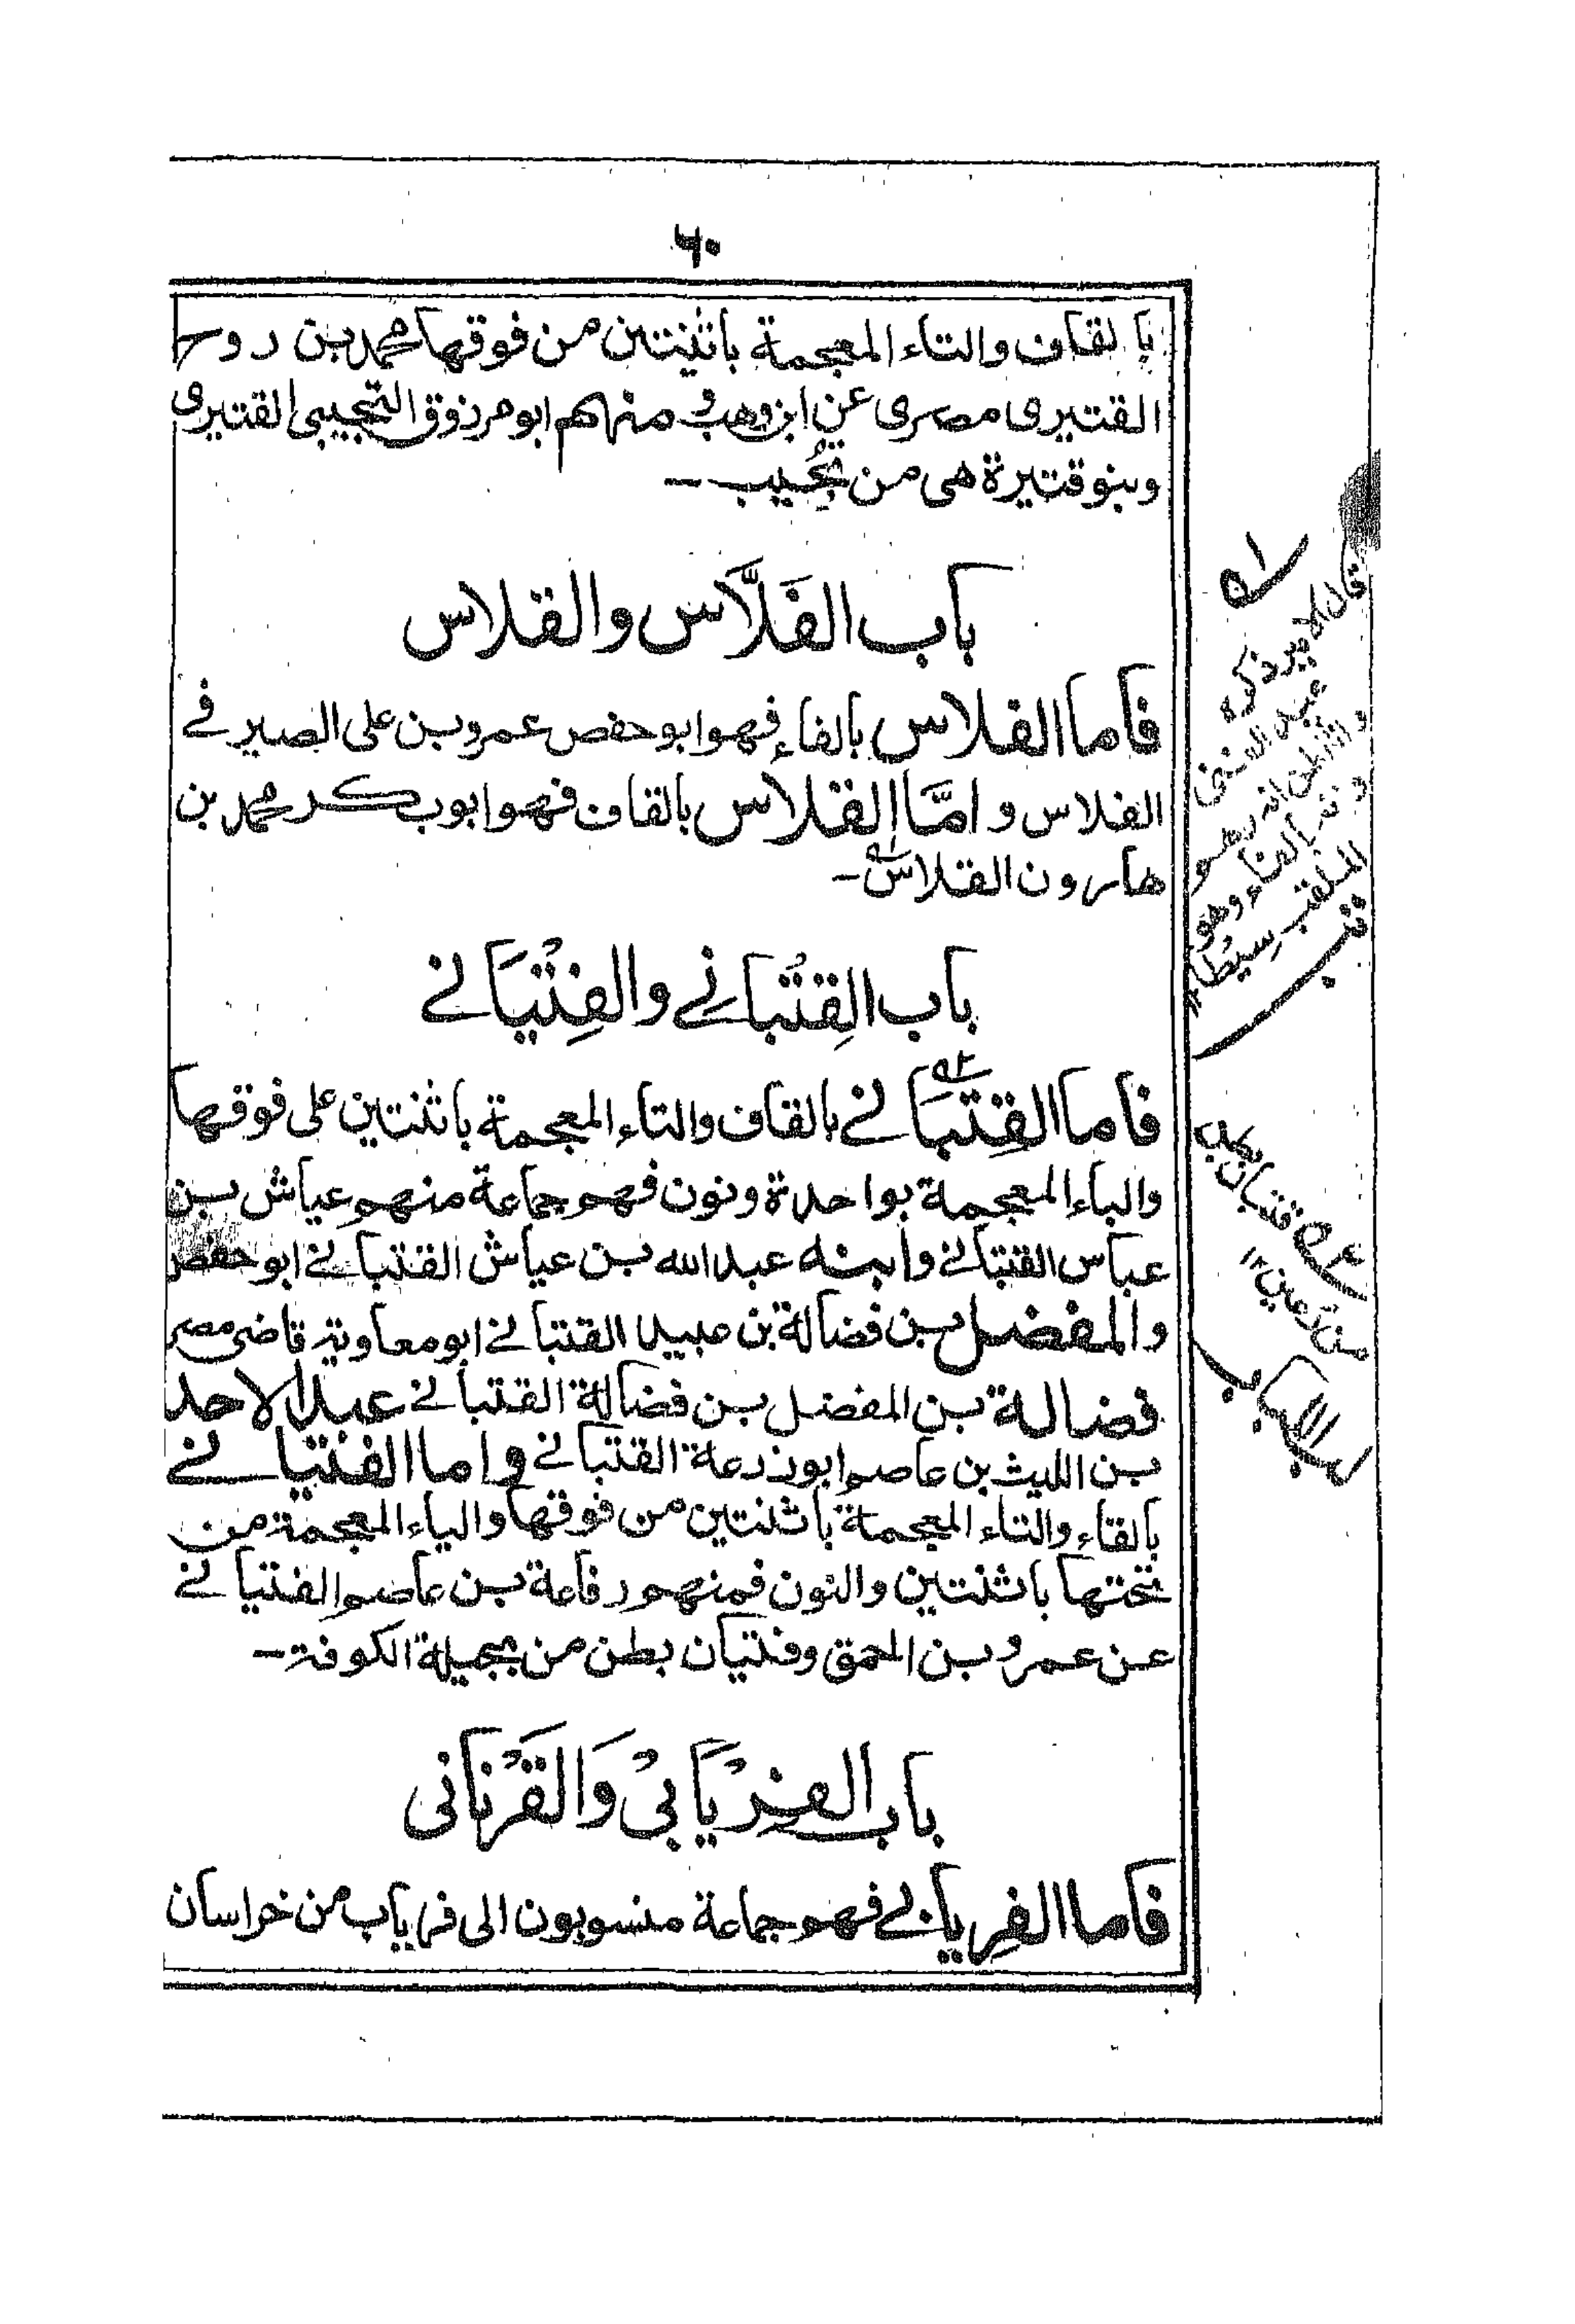 ٦٠
بالقاف والتاء المعجمة باثنيتين من فوقها محمد بن روح
القتيرى مصرى عن ابن وهب و منهم ابو مرزوق التجيبى القتيرى
وبنو قتيرة هى من تُجِيب -
باب الفَلَّاس والقلاس
فاما الفلاس بالفاء فهو ابو حفص عمرو بن على الصيرفے
الفلاس و امَّا القلاس بالقاف فهو ابو بكر محمد بن
هارون القلاس -
باب القِتْبانے والفِتْيَانے
فاما القِتبَانے بالقاف والتاء المعجمة باثنتين على فوقها
والباء المعجمة بواحدة ونون فهم جماعة منهم عياش بن
عباس القتبانے وابنه عبد الله بن عياش القتبانے ابو حفص
والمفضل بن فضالة بن عبيد القتبانے ابو معاوية قاضى مصر
فضالة بن المفضل بن فضالة القتبانے عبد الاحد
بن الليث بن عاصم ابو زرعة القتبانے و اما الفتيانے
بالفاء والتاء المعجمة باثنتين من فوقها والياء المعجمة من
تحتها باثنتين والنون فمنهم رفاعة بن عاصم الفتيانے
عن عمرو بن الحمق وفتيان بطن من بجيلة الكوفة -
باب الفِرْيَابىْ وَالقَرْنَانى
فاما الفِريابے فهم جماعة منسوبون الى فرياب من خراسان
قال الامير ذكره
عبد الغنى
بالفاء وهو
الملقب سيطا
قتبان بطن
من رعين ١٢